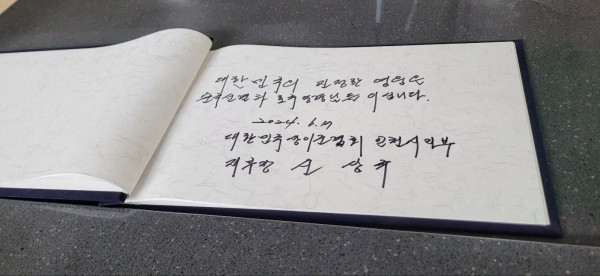 대한민국의 진정한 영웅은
순국선열과 호국영령님들 이십니다.
2024. 6.
대한민국상이군경회 인천시지부
지부장